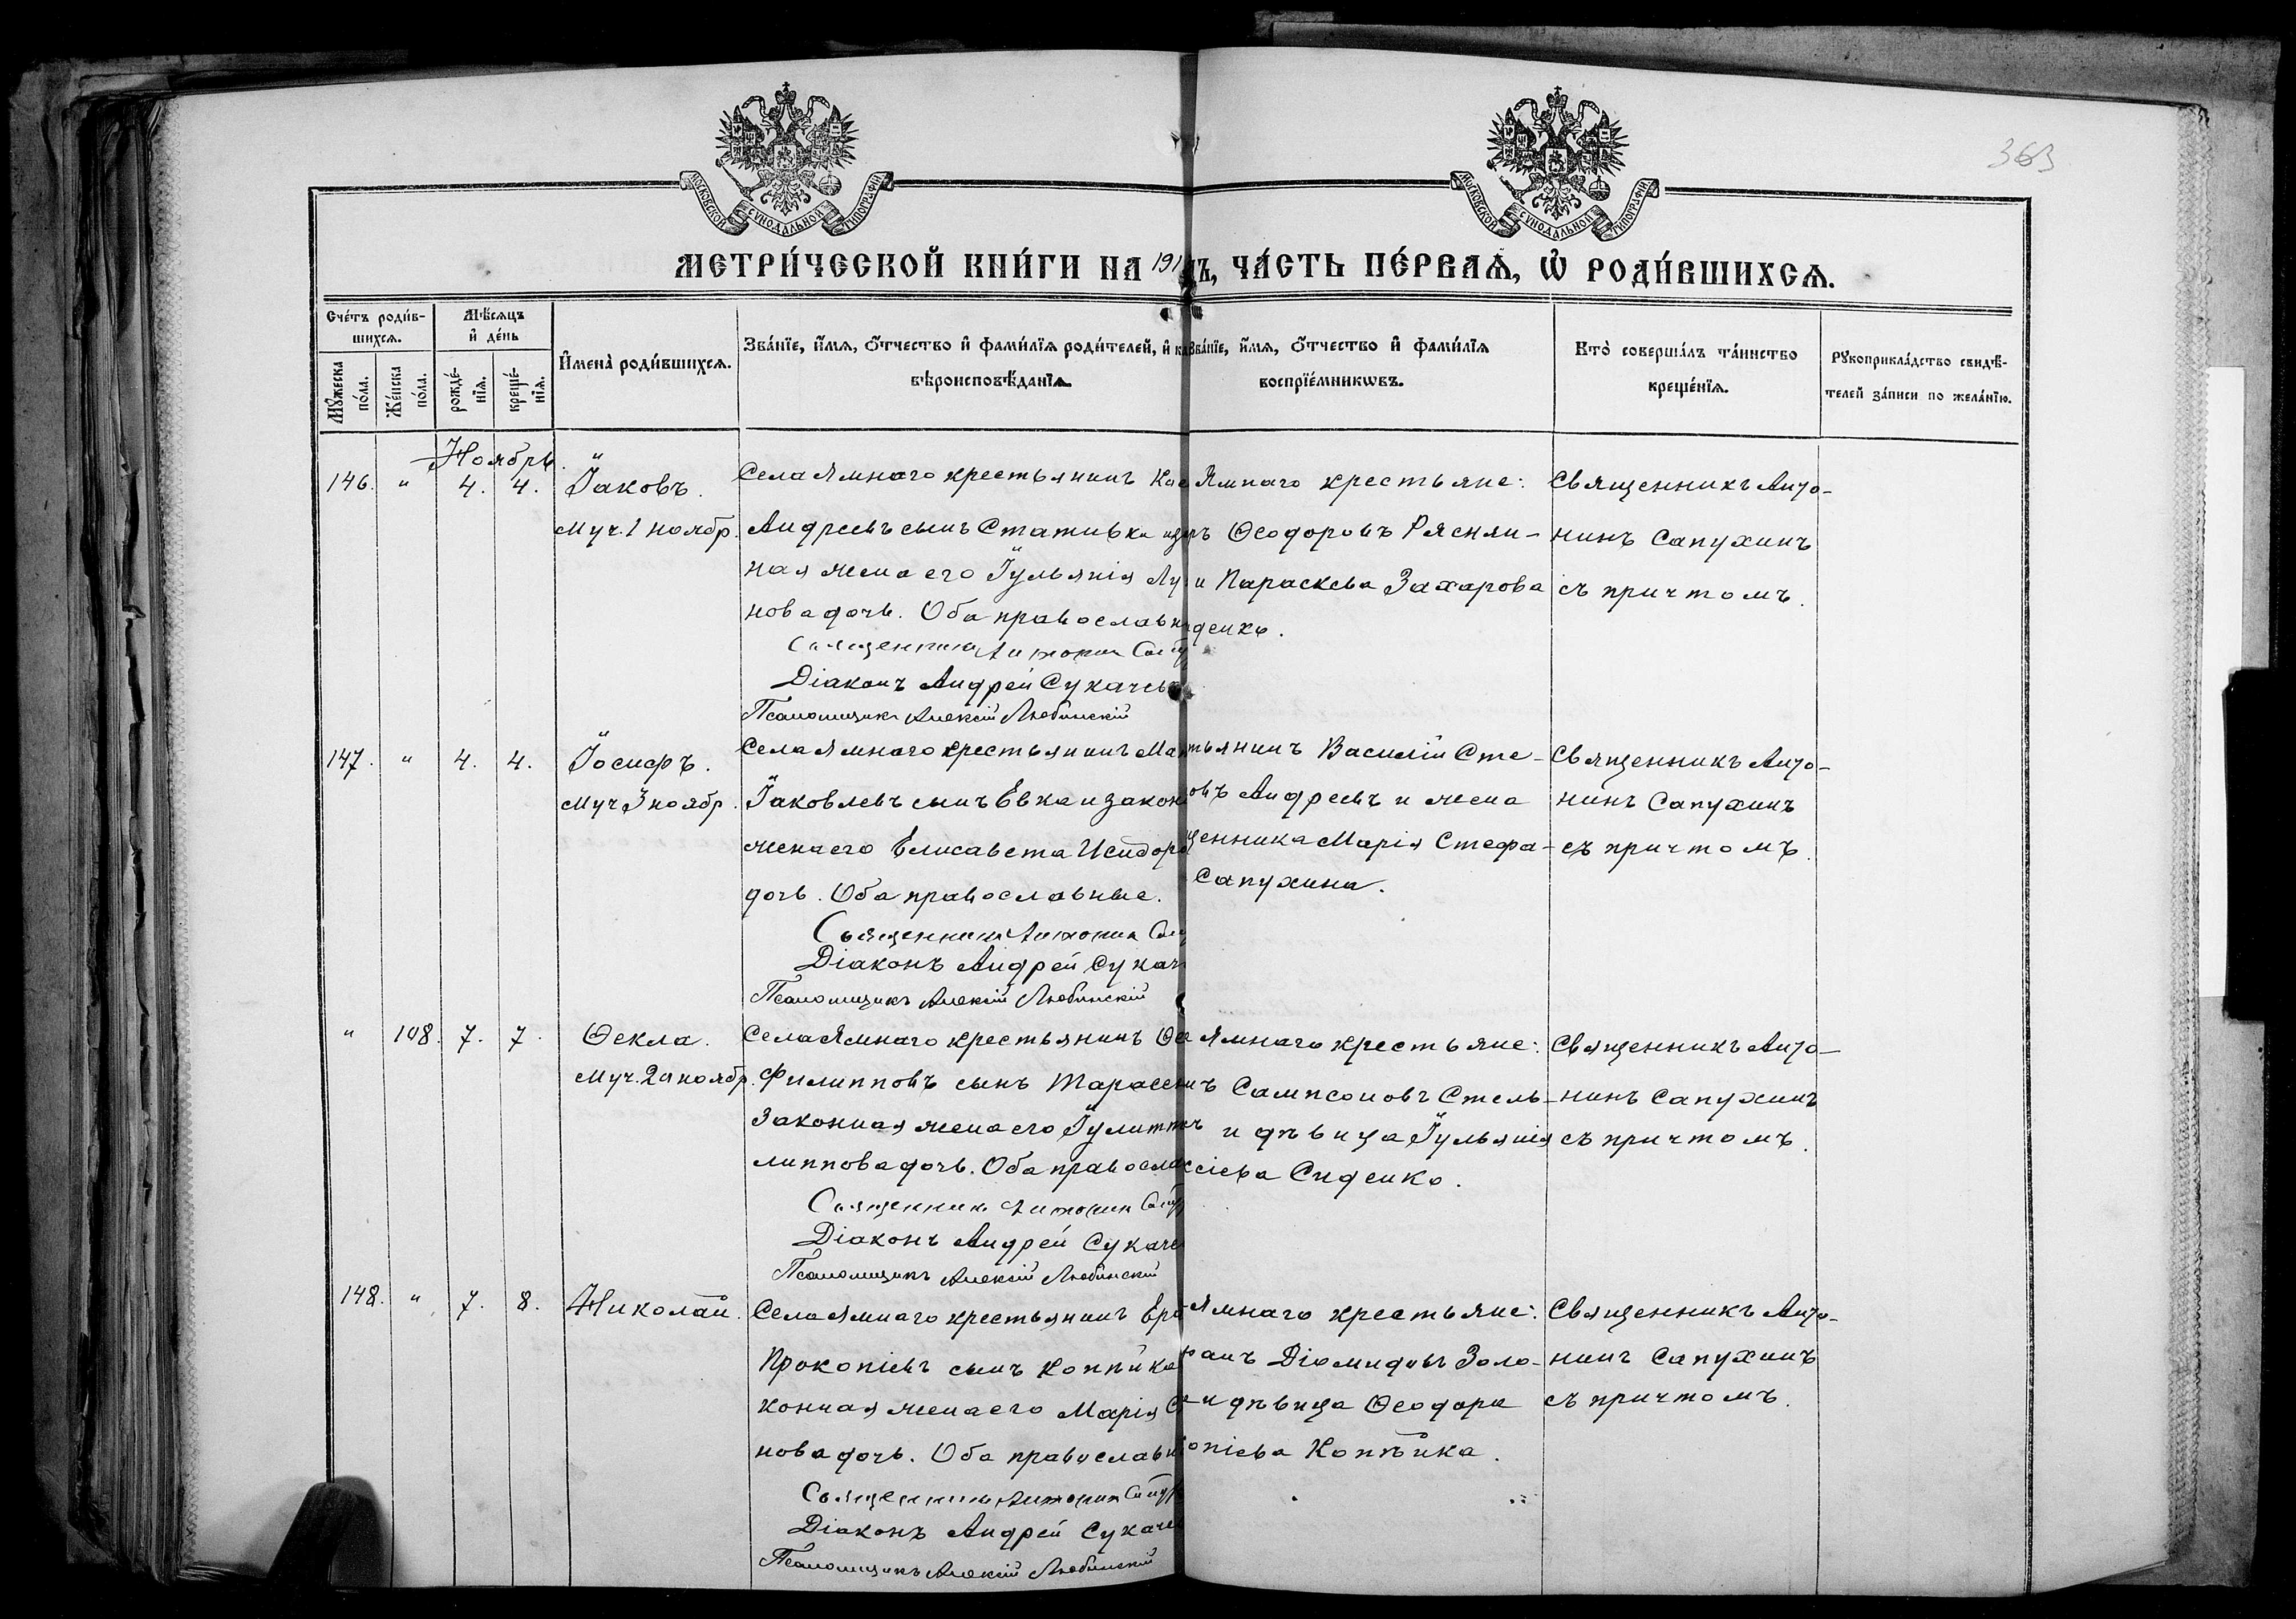 363
МОСКОВСКОЙ СѴНОДАЛЬНОЙ ТИПОГРАФІИ
МОСКОВСКОЙ СѴНОДАЛЬНОЙ ТИПОГРАФІИ
МЕТРИ́ЧЕСКОЙ КНИ́ГИ НА 191 ДЪ, ЧА́СТЬ ПЕ́РВАѦ, Ѡ҆ РОДИ́ВШИХСѦ.
Сче́тъ роди́в-
шихсѧ.
Мꙋ́жеска по́ла.
Же́нска по́ла.
Мѣ́сяцъ
и҆ де́нь
рожде́-
нїѧ.
креще́-
нїѧ.
И҆мена̀ роди́вшихсѧ.
Зва́нїе, и҆́мѧ, ѻ҆́тчество и҆ фами́лїѧ роди́телей, и҆ ка
вѣроисповѣ́данїѧ.
Зва́нїе, и҆́мѧ, ѻ҆́тчество и҆ фами́лїѧ
воспрїе́мникѡвъ.
Кто̀ соверша́лъ та́инство
креще́нїѧ.
Рꙋкоприкла́дство свидѣ́-
телей за́писи по жела́нїю.
Ноябрь.
146. " 4. 4. Іаковъ.
муч. 1 ноябр.
Села Ямнаго крестьянинъ Кас
Андреевъ сынъ Стативка и
ная жена его Іульянія Лу
нова дочь. Оба православн
Священникъ Антонин Сапу
Діаконъ Андрей Сукачев
Псаломщикъ Алексій Любинскій
Ямнаго крестьяне:
ръ Ѳеодоровъ Ряснян-
и Параскева Захарова
денко.
Священникъ Анто-
нинъ Сапухинъ
съ причтомъ.
147. " 4. 4. Іосифъ.
муч 3 ноябр.
Села Ямнаго крестьянинъ Ма
Іаковлевъ сынъ Евка и закон
жена его Елисавета Исидоро
дочь. Оба православные.
Священникъ Антонин Сапу
Діаконъ Андрей Сукач
Псаломщикъ Алексій Любинскій
тьянинъ Василій Сте-
овъ Андреевъ и жена
щенника Марія Стефа-
Сапухина.
Священникъ Анто-
нинъ Сапухинъ
съ причтомъ.
" 108. 7. 7. Ѳекла.
муч. 20 ноябр.
Села Ямнаго крестьянинъ Ѳе
Филипповъ сынъ Тарасен
законная жена его Іулитт
липпова дочь. Оба православ
Священникъ Антонин Сапу
Діаконъ Андрей Сукаче
Псаломщикъ Алексій Любинскій
Ямнаго крестьяне:
ъ Сампсоновъ Стель-
ъ и дѣвица Іульянія
ссіева Сиденко.
Священникъ Анто-
нинъ Сапухинъ
съ причтомъ.
148. " 7. 8. Николай.
Села Ямнаго крестьянинъ Ера
Прокопіевъ сынъ Копѣйка
конная жена его Марія Ст
нова дочь. Оба православн
Священникъ Антонин Сапух
Діаконъ Андрей Сукачев
Псаломщикъ Алексій Любинскій
Ямнаго крестьяне:
ранъ Діомидовъ Золо-
и дѣвица Ѳеодора
опіева Копѣйка.
Священникъ Анто-
нинъ Сапухинъ
съ причтомъ.